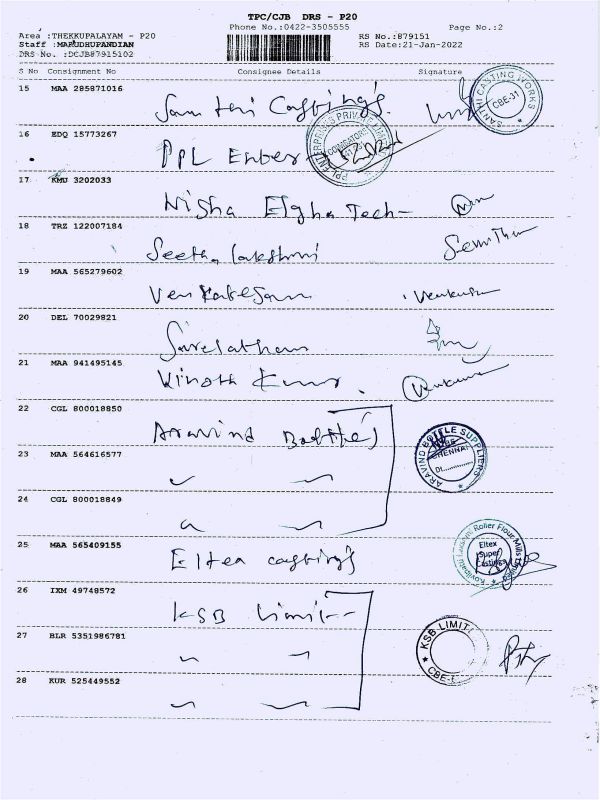 TPC/CJB DRS - P20
Phone No.:0422-3505555 Page No.:2
Area :THEKKUPALAYAM - P20 RS No.:879151
Staff :MARUDHUPANDIAN RS Date:21-Jan-2022
DRS No. :DCJB87915102
S No Consignment No Consignee Details Signature
15 MAA 285871016
Santhi Castings
SANTHI CASTING WORKS CBE-31
16 EDQ 15773267
PPL Enter
PPL ENTERPRISES PRIVATE LIMITED COIMBATORE
17 KMU 3202033
Nisha Elgha Tech
18 TRZ 122007184
Seetha lakshmi
19 MAA 565279602
Venkatesan
20 DEL 70029821
21 MAA 941495145
Vinoth Kumar
22 CGL 800018850
Aravind Bottles
ARAVIND BOTTLE SUPPLIERS CHENNAI
23 MAA 564616577
24 CGL 800018849
25 MAA 565409155
Eltex castings
Kovilpatti Lakshmi Roller Flour Mills Limited Eltex Super Castings
26 IXM 49748572
KSB Limit
KSB LIMIT CBE
27 BLR 5351986781
28 KUR 525449552